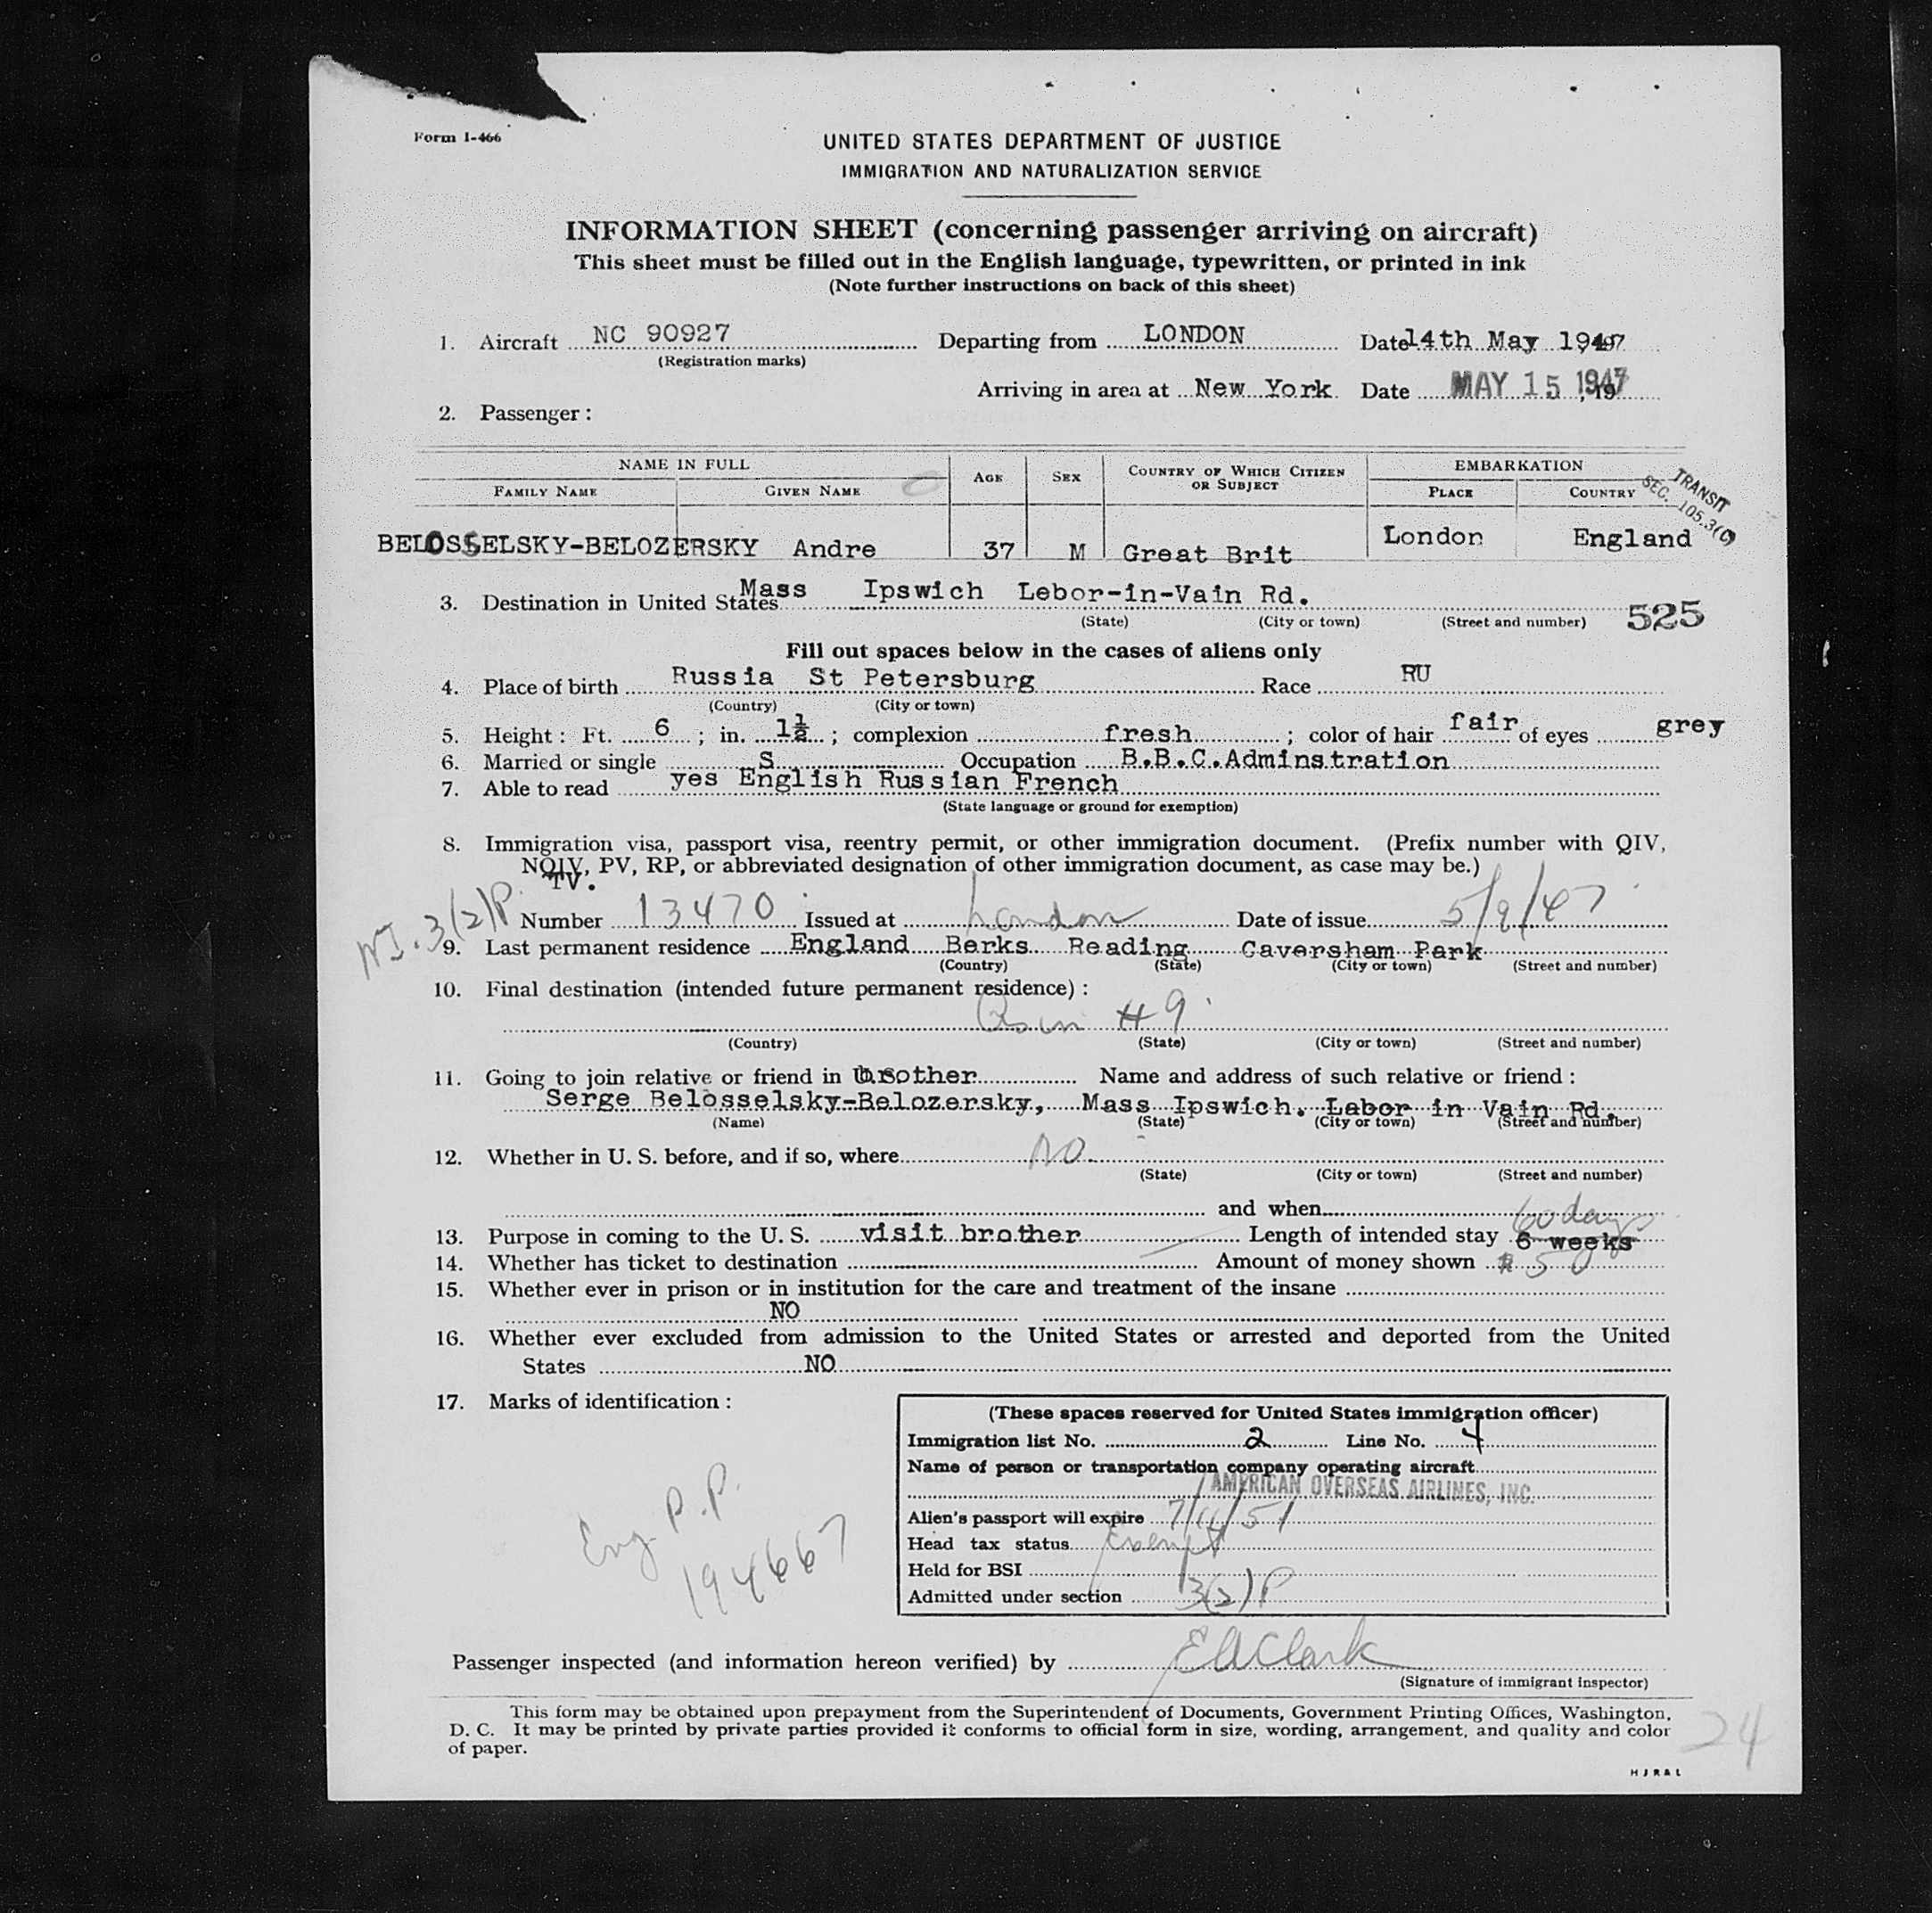 Form I-466
UNITED STATES DEPARTMENT OF JUSTICE
IMMIGRATION AND NATURALIZATION SERVICE
INFORMATION SHEET (concerning passenger arriving on aircraft)
This sheet must be filled out in the English language, typewritten, or printed in ink
(Note further instructions on back of this sheet)
1. Aircraft NC 90927 Departing from LONDON Date 14th May 1947
(Registration marks)
Arriving in area at New York Date MAY 15 1947
2. Passenger:
NAME IN FULL AGE SEX COUNTRY OF WHICH CITIZEN OR SUBJECT EMBARKATION
FAMILY NAME GIVEN NAME PLACE COUNTRY
TRANSIT
SEC. 105.3(C)
BELOSSELSKY-BELOZERSKY Andre 37 M Great Brit London England
3. Destination in United States Mass Ipswich Lebor-in-Vain Rd.
(State) (City or town) (Street and number) 525
Fill out spaces below in the cases of aliens only
4. Place of birth Russia St Petersburg Race RU
(Country) (City or town)
5. Height: Ft. 6; in. 1½; complexion fresh; color of hair fair of eyes grey
6. Married or single S Occupation B.B.C.Adminstration
7. Able to read yes English Russian French
(State language or ground for exemption)
8. Immigration visa, passport visa, reentry permit, or other immigration document. (Prefix number with QIV,
NQIV, PV, RP, or abbreviated designation of other immigration document, as case may be.)
TV.
3(2)P Number 13470 Issued at London Date of issue 5/9/47
9. Last permanent residence England Berks Reading Caversham Park
(Country) (State) (City or town) (Street and number)
10. Final destination (intended future permanent residence):
#9
(Country) (State) (City or town) (Street and number)
11. Going to join relative or friend in brother Name and address of such relative or friend:
Serge Belosselsky-Belozersky, Mass Ipswich. Labor in Vain Rd.
(Name) (State) (City or town) (Street and number)
12. Whether in U. S. before, and if so, where NO
(State) (City or town) (Street and number)
and when
60 days
13. Purpose in coming to the U. S. visit brother Length of intended stay 6 weeks
14. Whether has ticket to destination Amount of money shown 50
15. Whether ever in prison or in institution for the care and treatment of the insane
NO
16. Whether ever excluded from admission to the United States or arrested and deported from the United
States NO
17. Marks of identification:
(These spaces reserved for United States immigration officer)
Immigration list No. 2 Line No. 4
Name of person or transportation company operating aircraft
AMERICAN OVERSEAS AIRLINES, INC.
Alien's passport will expire 7/11/51
Head tax status Exempt
Held for BSI
Admitted under section 3(2)P
Eng. P.P.
194667
Passenger inspected (and information hereon verified) by E A Clark
(Signature of immigrant inspector)
This form may be obtained upon prepayment from the Superintendent of Documents, Government Printing Offices, Washington,
D. C. It may be printed by private parties provided it conforms to official form in size, wording, arrangement, and quality and color
of paper.
24
HJR&L